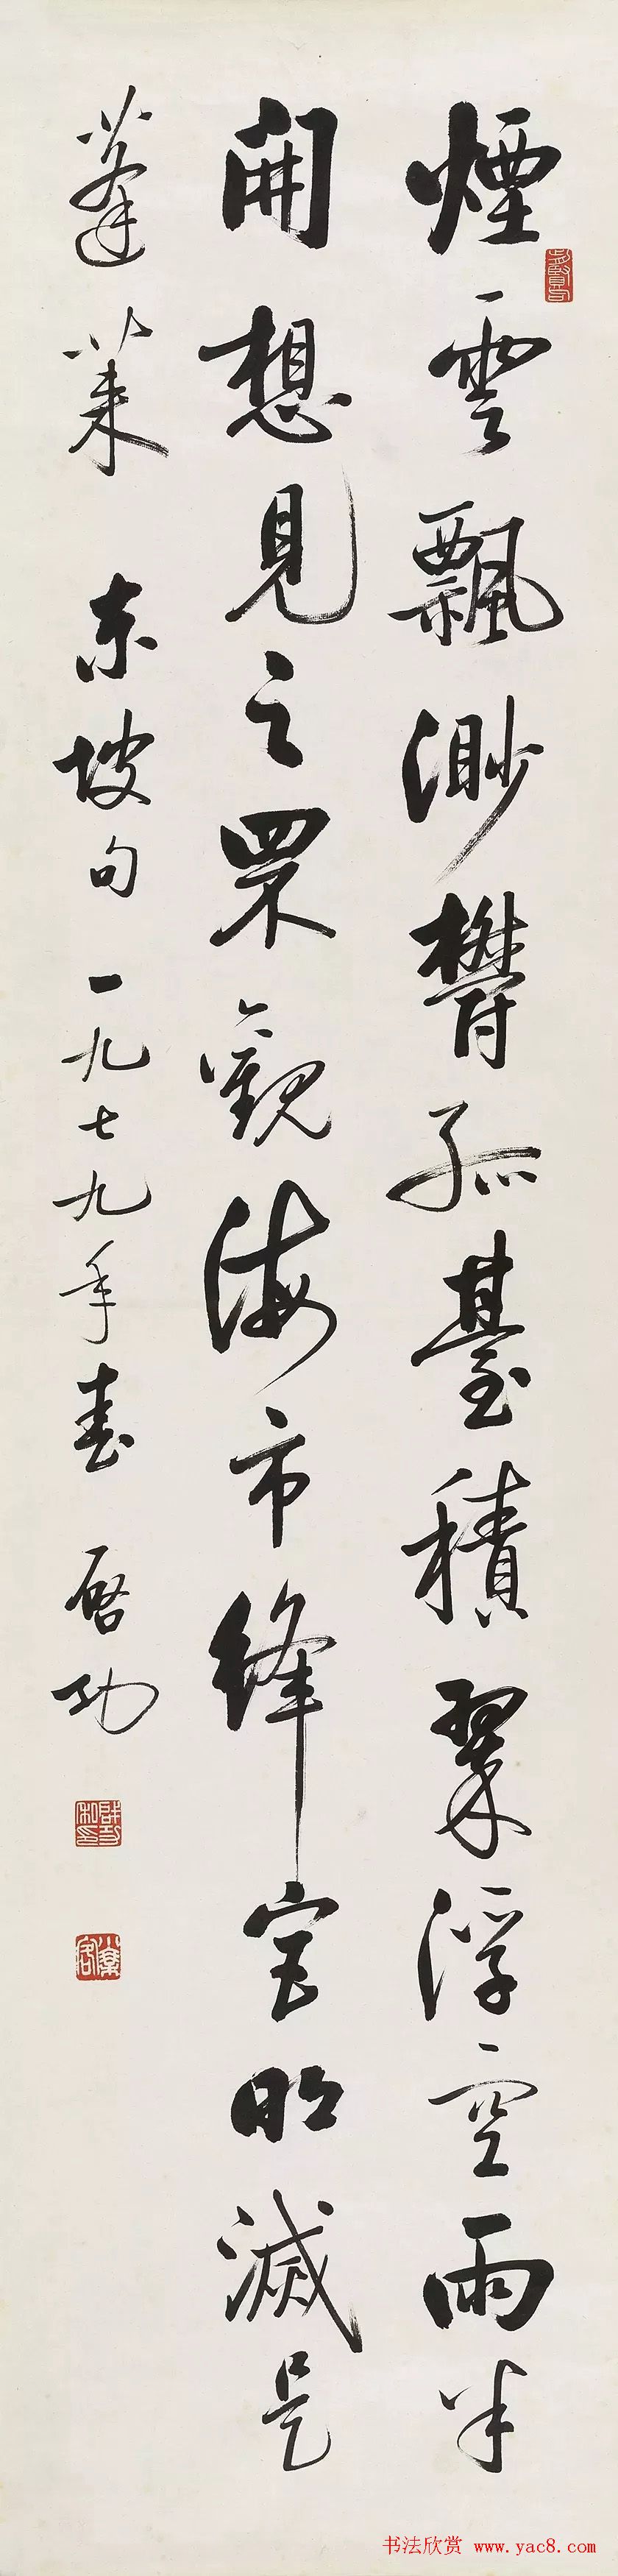 煙雲飄渺鬱孤臺積翠浮空雨半
開想見之罘觀海市絳宮明滅是
蓬萊 東坡句 一九七九年春 啓功
书法欣赏 www.yac8.com